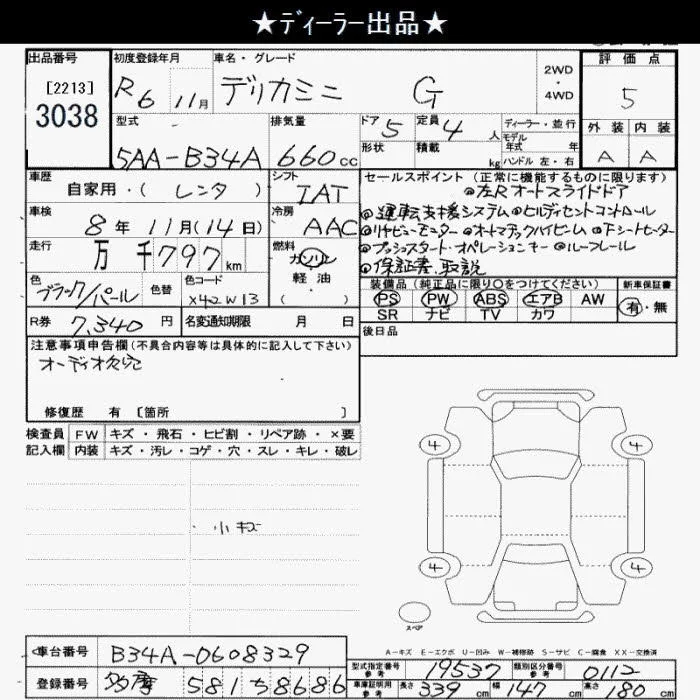 ★ディーラー出品★
出品番号
[2213]
3038
初度登録年月
R6 11月
車名・グレード
デリカミニ G
2WD
・
4WD
評価点
5
型式
5AA-B34A
排気量
660cc
ドア 5
形状
定員 4人
積載 kg
ディーラー・並行
モデル
年式 年
ハンドル 左・右
外装 内装
A A
車歴
自家用・( レンタ )
シフト
IAT
車検
8年11月(14日)
冷房
AAC
走行
万 千797km
燃料
ガソリン
軽油
( )
色
ブラック/パール
色替
色コード
X42W13
R券 7,340円
名変通知期限 月 日
セールスポイント (正常に機能するものに限ります)
◎左Rオートスライドドア
◎運転支援システム◎ヒルディセントコントロール
◎リヤビューモニター◎オートマチックハイビーム◎Fシートヒーター
◎プッシュスタート・オペレーションキー◎ルーフレール
◎保証書、取説
装備品 (純正品に限り○をつけてください)
PS PW ABS エアB AW
SR ナビ TV カワ
新車保証書
有・無
後日品
注意事項申告欄(不具合内容等は具体的に記入して下さい)
オーディオ欠穴
修復歴 有 [箇所 ]
検査員
記入欄
FW キズ・飛石・ヒビ割・リペア跡・×要
内装 キズ・汚レ・コゲ・穴・スレ・キレ・破レ
・小キズ
4 4
4 4
スペア
A-キズ E-エクボ U-凹み W-補修跡 S-サビ C-腐食 XX-交換済
車台番号 B34A-0608329
登録番号 多摩 581ち8686
型式指定番号
参考
19537
類別区分番号
参考
0112
車庫証明用
参考
長さ 339cm 幅 147cm 高さ 180cm